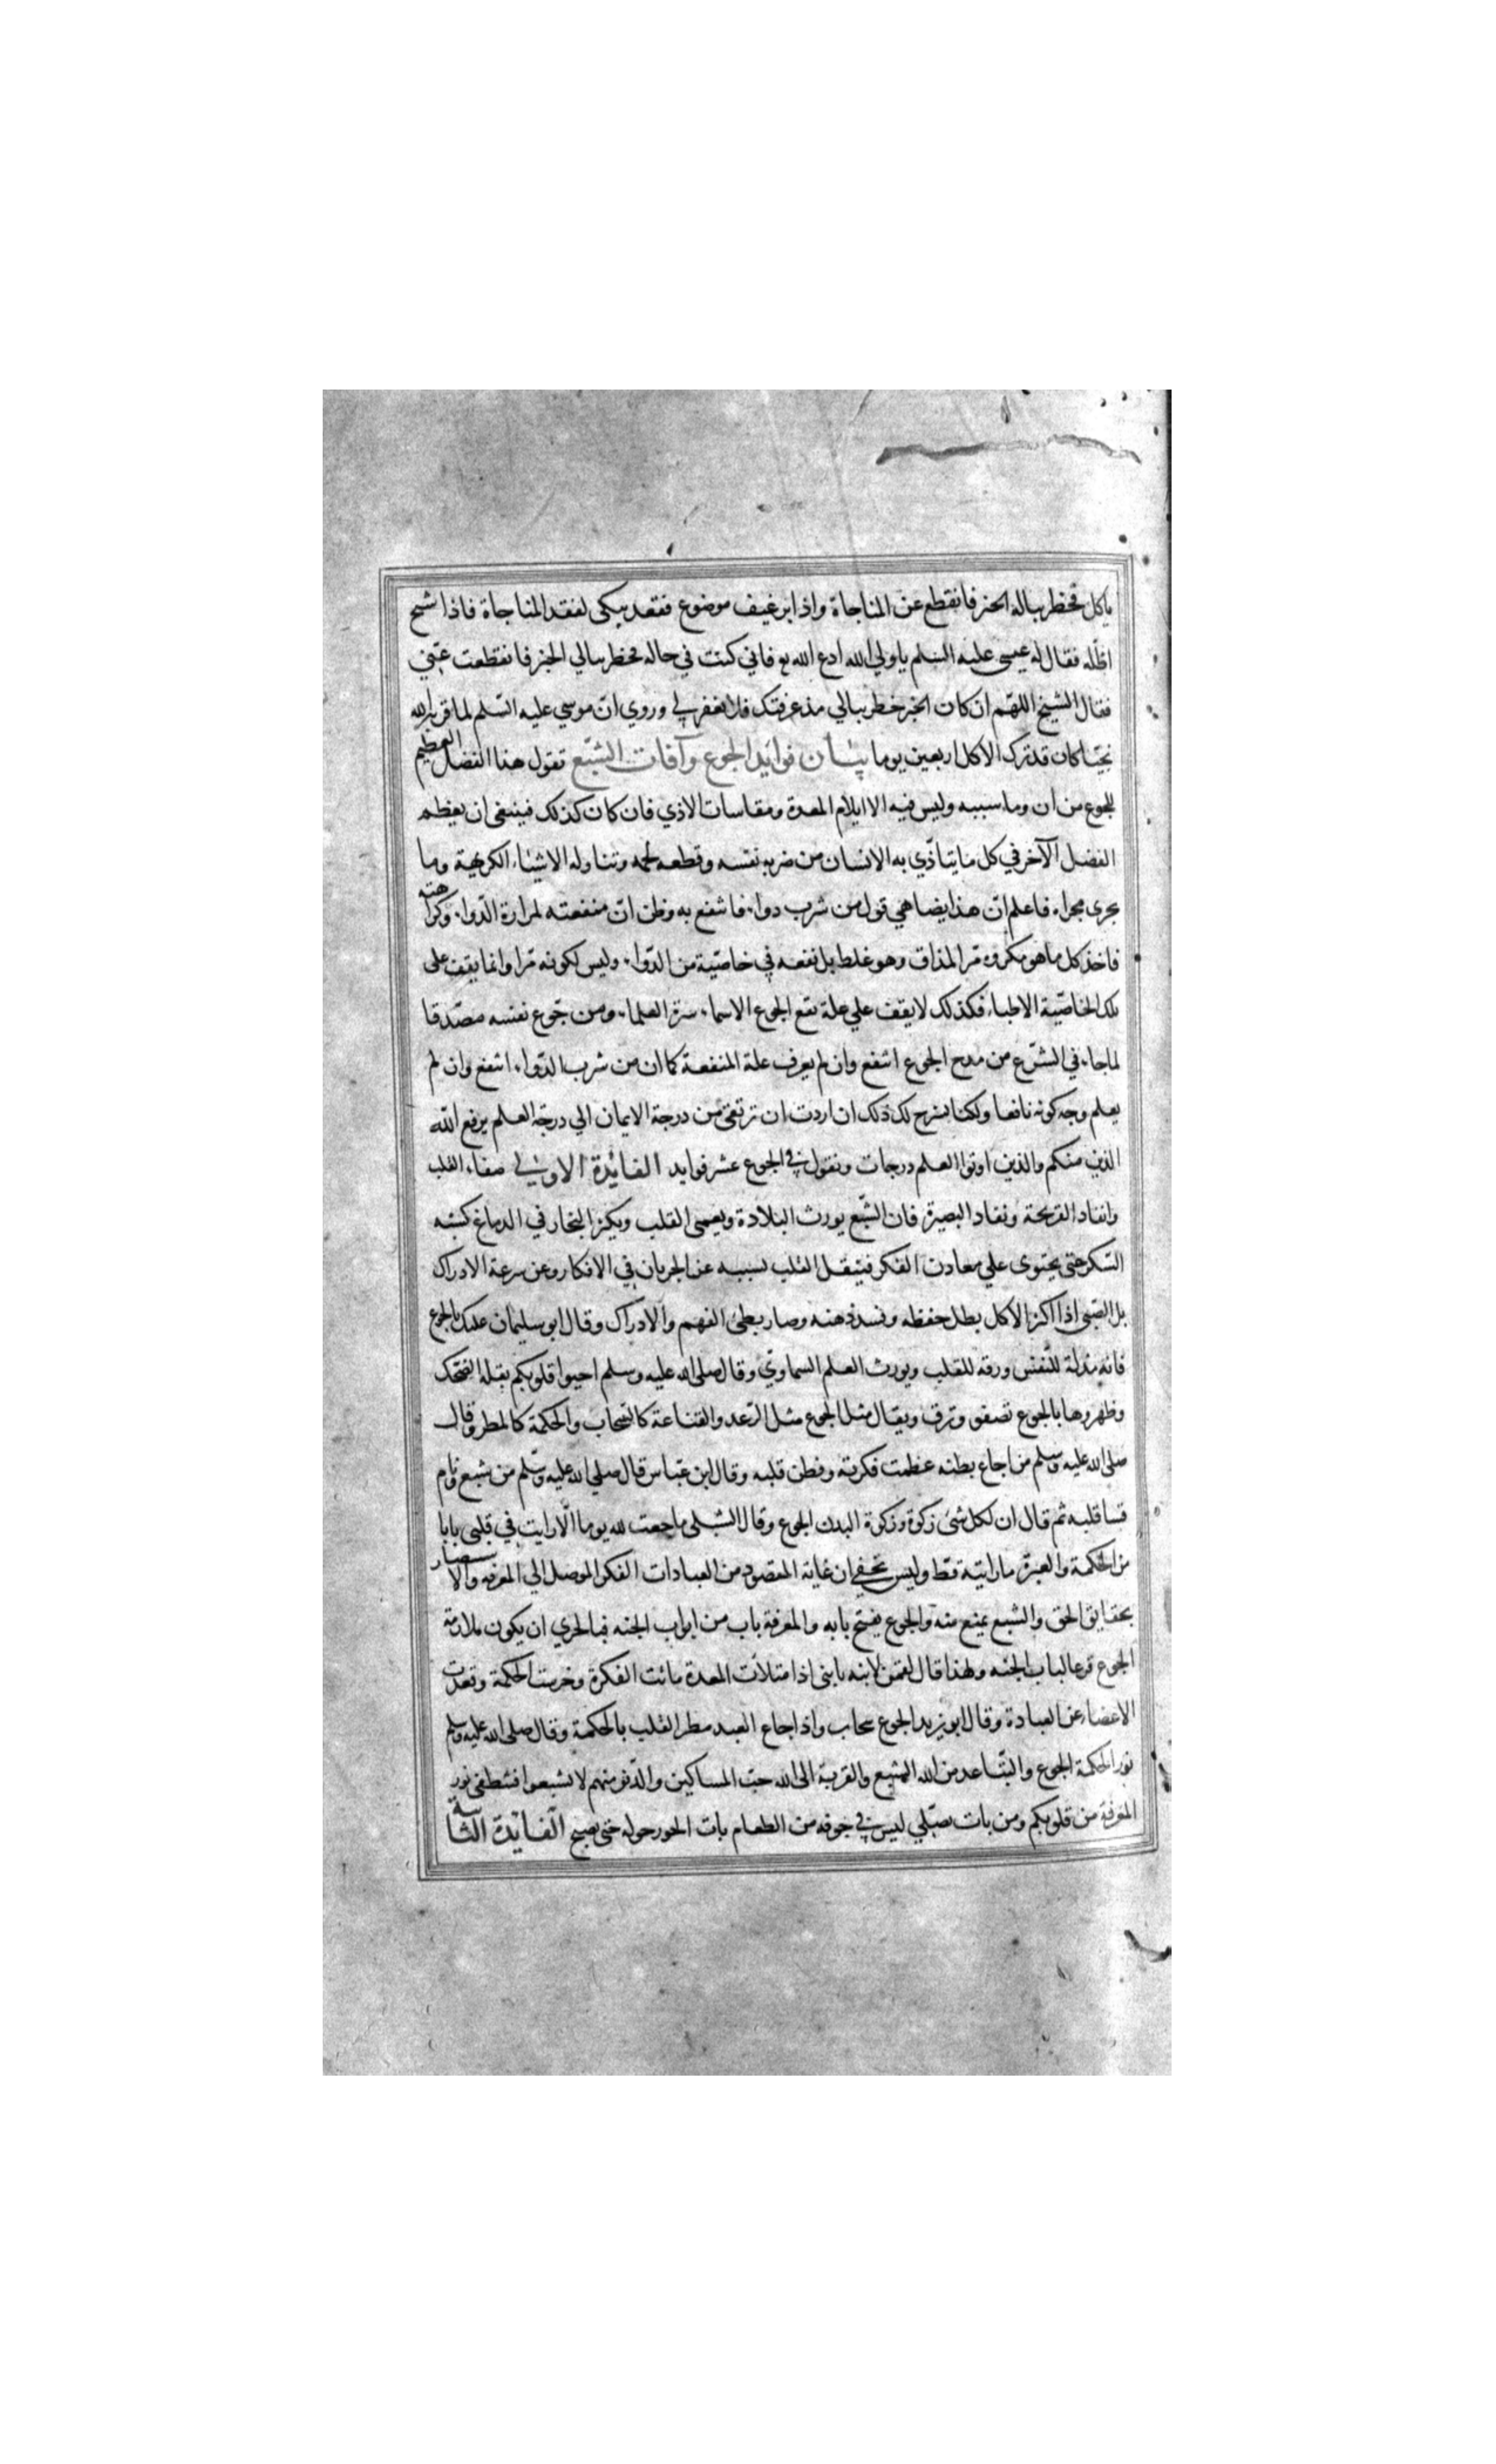 ياكل فخطر بباله الخبز فانقطع عن المناجاة واذا برغيف موضوع فقعد يبكى لفقد المناجاة فاذا شيخ
اظله فقال له عيسى عليه السلم يا ولي الله ادع الله لي فاني كنت في حاله فخطر ببالي الخبز فانقطعت عني
فقال الشيخ اللهم ان كان الخبز خطر ببالي مذ عرفتك فلا تغفر لي وروي انّ موسي عليه السّلم لما قربه الله
نجيّا كان قد ترك الاكل اربعين يوما بيان فوايد الجوع وآفات الشبّع تقول هذا الفضل العظيم
للجوع من ان وما سببه وليس فيه الا ايلام المعدة ومقاسات الاذي فان كان كذلك فينبغى ان يعظم
الفضل الآخر في كل ما يتاذّي به الانسان من ضربه نفسه وقطعه لحمه وتناوله الاشياء الكريهة وما
يجرى مجراه فاعلم انّ هذا يضاهي قول من شرب دواء فانتفع به وظن انّ منفعته لمرارة الدّواء وكراهته
فاخذ كل ما هو مكروه مرّ المذاق وهو غلط بل نفعه في خاصّية من الدّواء وليس لكونه مرّا وانما يقف على
تلك الخاصّية الاطباء فكذلك لا يقف علي علة نفع الجوع الا سماسرة العلماء ومن جوّع نفسه مصدّقا
لما جاء في الشرّع من مدح الجوع انتفع وان لم يعرف علة المنفعة كما ان من شرب الدّواء انتفع وان لم
يعلم وجه كونه نافعا ولكنا نشرح لك ذلك ان اردت ان ترتقى من درجة الايمان الي درجة العلم يرفع الله
الذين منكم والذين اوتوا العلم درجات ونقول في الجوع عشر فوايد الفائدة الاولي صفاء القلب
وانقاد القريحة ونفاد البصيرة فان الشّبع يورث البلادة ويعمى القلب ويكثر البخار في الدماغ كشبه
السّكر حتى يحتوى علي معادن الفكر فيثقل القلب بسببه عن الجريان في الافكار وعن سرعة الادراك
بل الصّبى اذا اكثر الاكل بطل حفظه وفسد ذهنه وصار بطئ الفهم والادراك وقال ابو سليمان عليك بالجوع
فانه مذلة للنّفس ورقه للقلب ويورث العلم السماويّ وقال صلى الله عليه وسلم احيوا قلوبكم بقلة الضحك
وطهروها بالجوع تصفو وترق ويقال مثل الجوع مثل الرّعد والقناعة كالسّحاب والحكمة كالمطر وقال
صلى الله عليه وسلم من اجاع بطنه عظمت فكرته وفطن قلبه وقال ابن عباس قال صلي الله عليه وسلم من شبع ونام
قسا قلبه ثم قال ان لكل شئ زكوة وزكوة البدن الجوع وقال الشبلى ما جعت لله يوما الّا رايت في قلبى بابا
من الحكمة والعبرة ما رايته قط وليس تخفى ان غاية المقصود من العبادات الفكر الموصل الي المعرفه والاستبصار
بحقايق الحق والشبع يمنع منه والجوع يفتح بابه والمعرفة باب من ابواب الجنه فبالحري ان يكون ملازمة
الجوع قرعا لباب الجنه ولهذا قال لقمن لابنه يا بنى اذا امتلات المعدة ماتت الفكرة وخرست الحكمة وقعدت
الاعضاء عن العبادة وقال ابو يزيد الجوع سحاب واذا جاع العبد مطر القلب بالحكمة وقال صلى الله عليه وسلم
نور الحكمة الجوع والتّباعد من الله الشبع والقربة الى الله حبّ المساكين والدّنو منهم لا تشبعوا فتطفى نور
المعرفة من قلوبكم ومن بات يصّلي ليس في جوفه من الطعام بات الحور حوله حتى يصبح الفايدة الثانية